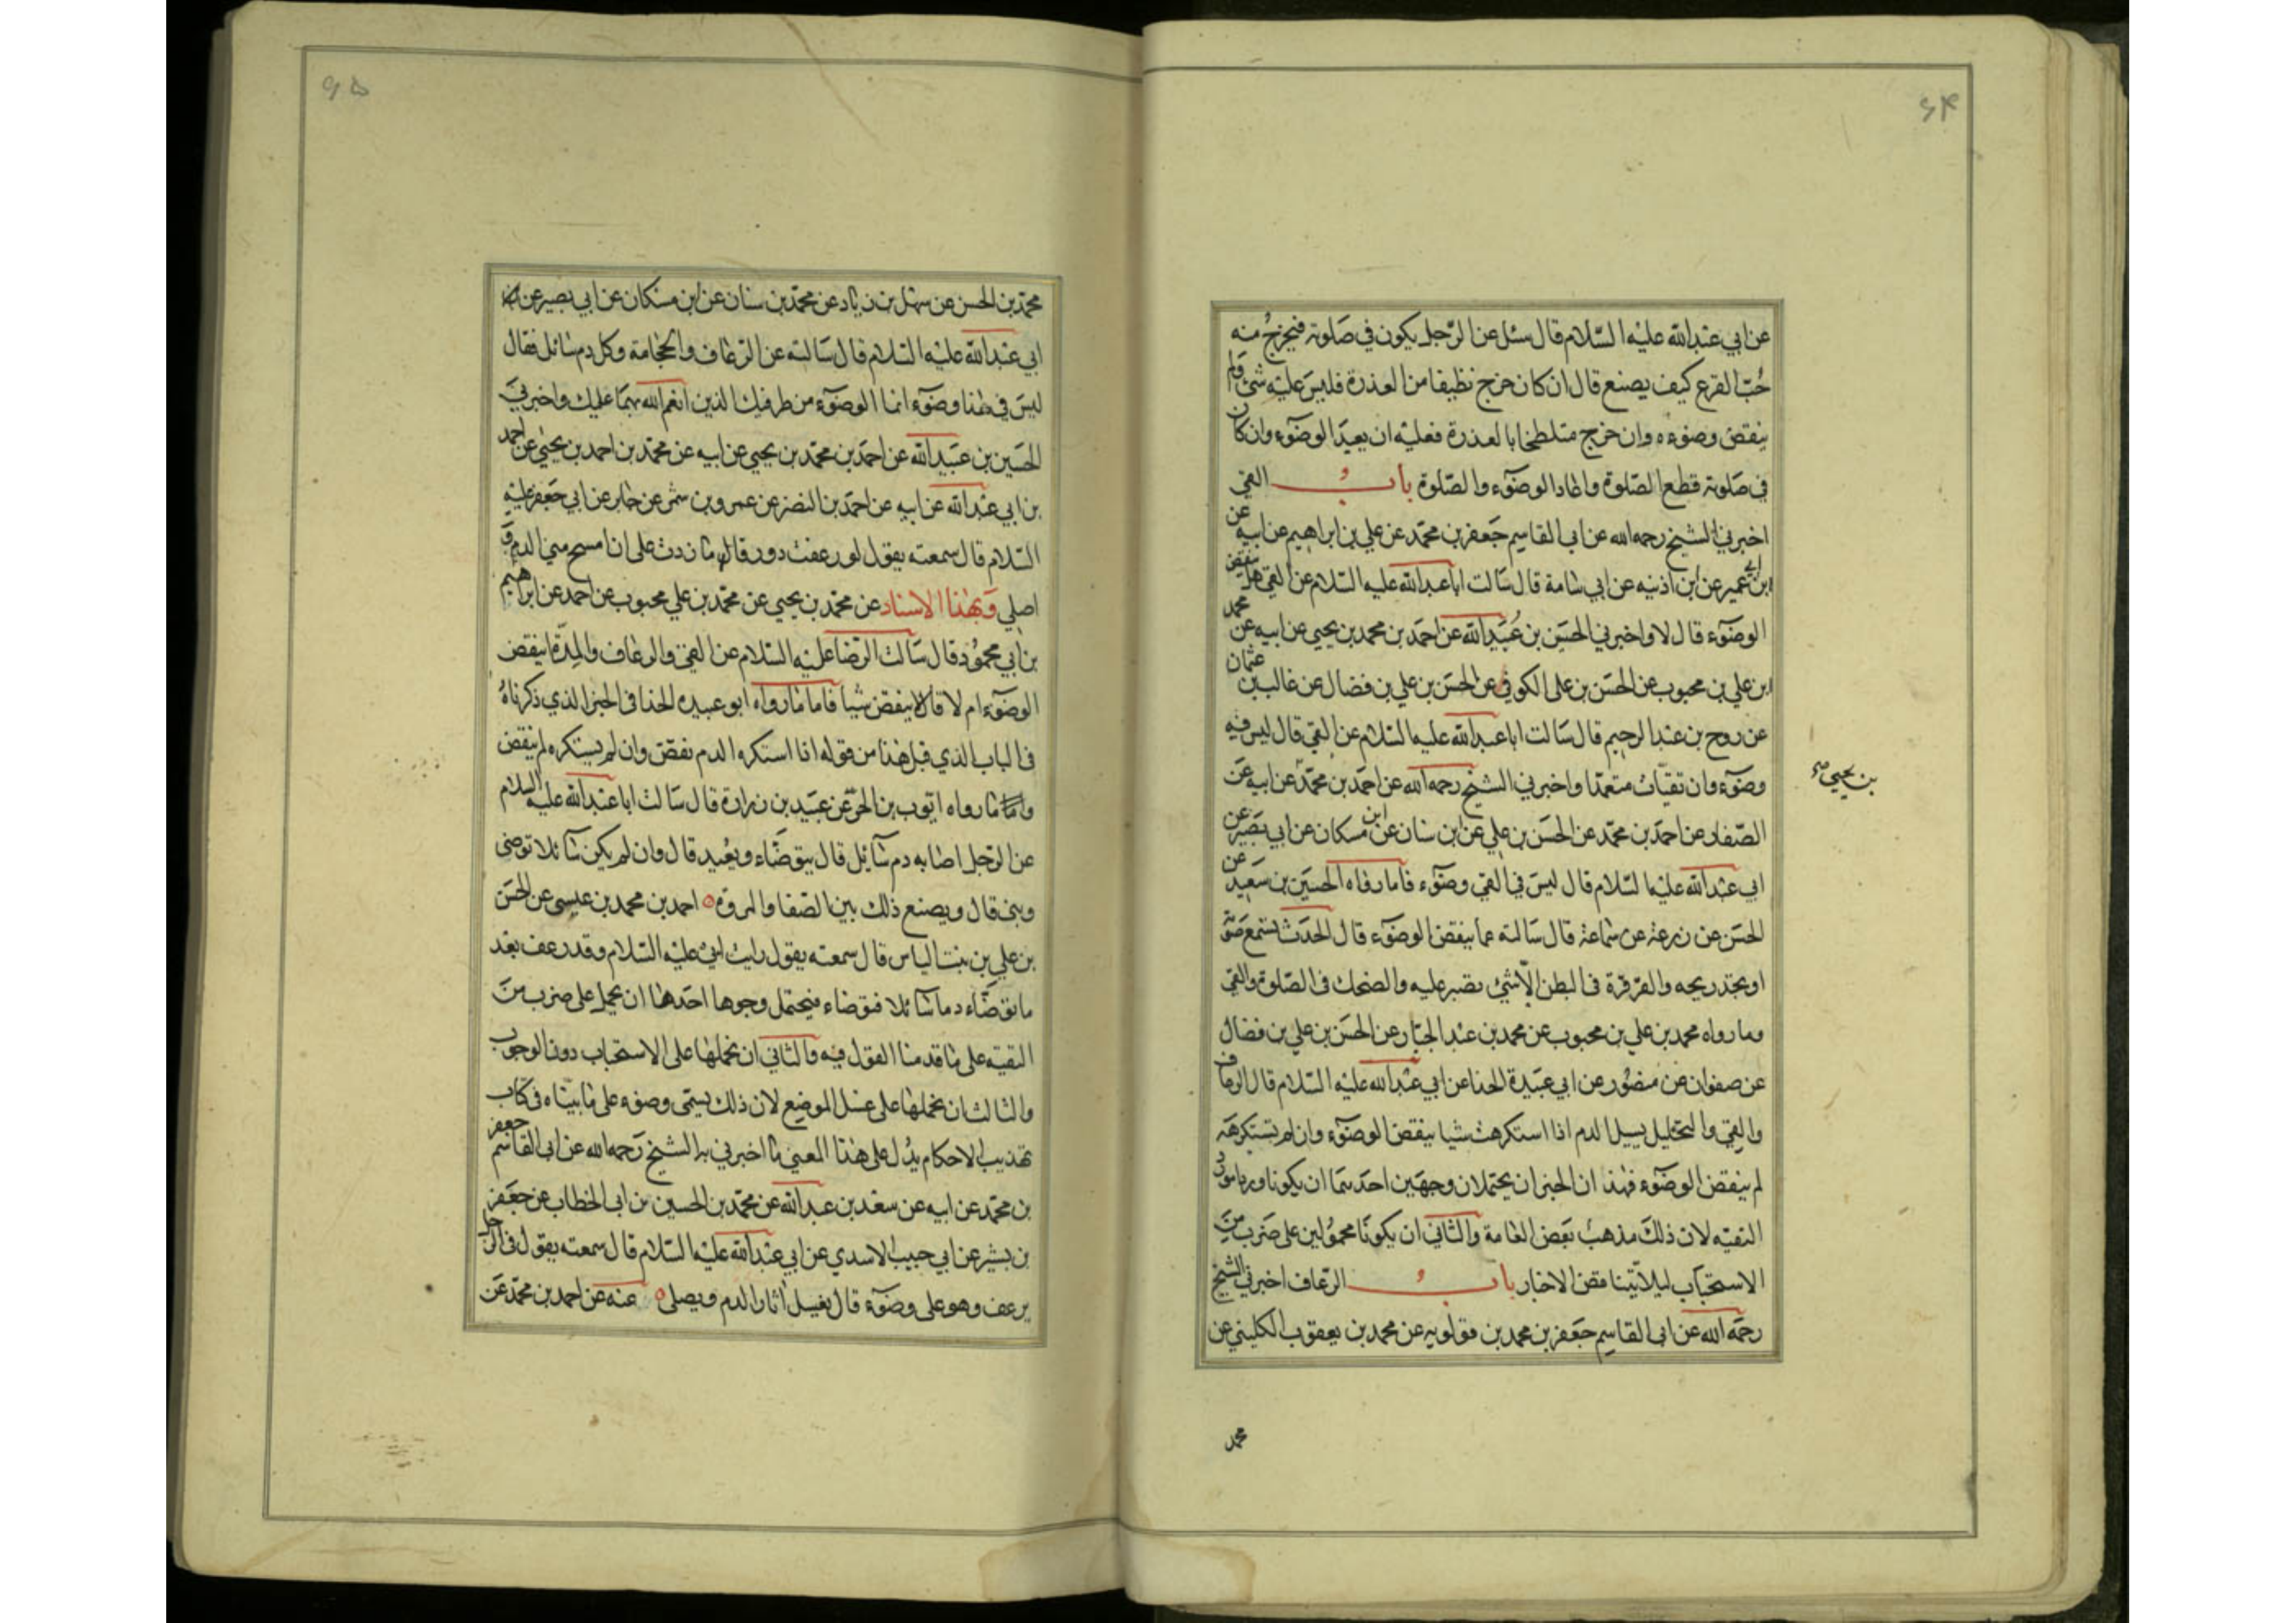 ۶۴
عن ابي عبدالله عليه السّلام قال سئل عن الرّجل يكون في صَلوته فيخرجُ منه
حُبّ القرع كيف يصنع قال ان كان خرج نظيفا من العذرة فليس عليه شئ ولم
ينقض وضوءه وان خرج متلطخا بالعذرة فعليه ان يعيد الوضوٓء وان كان
في صَلوته قطع الصّلوة واعاد الوضوٓء والصّلوة بابُ القئ
اخبرني الشيخ رحمه الله عن ابى القاسم جَعفر بن محمّد عن علي بن ابراهيم عن ابيه عن
ابن ابي عمير عن ابن اذنيه عن ابي سامة قال سَالت اباعبدالله عليه السّلام عن القئ هل ينقض
الوضوٓء قال لا واخبرني الحسَين بن عُبَيدالله عن احمَد بن محمد بن يحيي عن ابيه عن محمد
ابن علي بن محبوب عن الحسَن بن على الكوفي عن الحسَن بن علي بن فضال عن غالب بن عثمان
عن روح بن عبدالرحيم قال سَالت اباعبدالله عليه السّلام عن القئ قال ليس فيه
وضوٓء وان تقيّات متعمّدا واخبرني الشيخ رحمه الله عن احمَد بن محمّد عن ابيه عن
بن يحيي
الصّفار عن احمَد بن محمّد عن الحسَن بن علي عن ابن سنان عن ابن مسكان عن ابي بَصير عن
ابي عبدالله عليه السّلام قال ليسَ في القئ وضوٓء فاما رواه الحسَين بن سَعيد عن
الحسَن عن زرعة عن سَماعة قال سَالته عما ينقض الوضوٓء قال الحدَث تسمع صَوته
او تجد ريحه والقرقرة في البطن الّا شئ تصبر عليه والضحك في الصّلوة والقئ
وما رواه محمد بن علي بن محبوب عن محمد بن عبدالجبّار عن الحسَن بن علي بن فضال
عن صفوان عن منصُور عن ابي عبَيدة الحذا عن ابي عبدالله عليه السّلام قال الرعاف
والقئ والتخليل يسيل الدم اذا استكرهت شيا ينقض الوضوٓء وان لم تستكرهَه
لم ينقض الوضوٓء فهذان الخبران يحتملان وجهَين احدَهما ان يكونا وردا مورد
التقيّه لان ذلكَ مذهبُ بَعض العَامة والثاني ان يكونَا محمُولين على ضَرب منَ
الاستحبَاب ليلا تتناقض الاخبار بابُ الرّعاف اخبرني الشيخ
رحمَه الله عن ابى القاسِم جَعفر بن محمد بن قولويه عن محمد بن يعقوب الكليني عن
محمد
۶۵
محمّد بن الحسن عن سهَل بن زياد عن محمّد بن سنان عن ابن مسكان عن ابي بصير عن
ابي عبدالله عليه السّلام قال سَالته عن الرّعاف والحجامة وكل دم سَائل فقال
ليسَ في هٰذا وضوٓء انما الوضوٓء من طرفيك الذين انعم الله بهمَا عليك واخبرنيَ
الحسَين بن عبَيدالله عن احمَد بن محمّد بن يحيي عن ابيه عن محمّد بن احمد بن يحيٰي عن احمد
بن ابي عبدالله عن ابيه عن احمَد بن النضر عن عمرو بن شمر عن جابر عن ابي جَعفر عليه
السّلام قال سمعته يقول لو رعفت دورقا ما زدت على ان امسح مني الدم و
اصلي وَبهٰذا الاسناد عن محمّد بن يحيي عن محمّد بن علي محبوب عن احمد عن ابراهيم
بن ابي محمُود قال سَالت الرّضا عليه السّلام عن القئ والرعاف والمِدّة اينقض
الوضوٓء ام لا قال لا ينقض شيا فاما مَا رواه ابو عبيده الحذا في الخبر الذي ذكرناهُ
في الباب الذي قبل هٰذا من قوله اذا استكره الدم نقض وان لم يستكره لم ينقض
واما مَا رواه ايّوب بن الحرّ عن عبَيد بن زرارة قال سَالت اباعبدالله عليه السلام
عن الرّجل اصَابه دم سٓائل قال يتوضّاء ويعُيد قال وان لم يكن سٓائلا توضى
وبنى قال ويصنع ذلك بين الصّفا والمروة ٥ احمد بن محمد بن عيسى عن الحسَن
بن علي بن بنت الياس قال سمعته يقول رايت ابي عليه السّلام وقد رعف بَعد
ما توضّاء دما سٓائلا فتوضاء فيحتمل وجوها احدَها ان يحمل على ضرب منَ
التقيّه على ما قدمنا القول فيه والثاني ان نحملهَا على الاستحبَاب دون الوجوب
والثالث ان نحملهَا على غسل الموضع لان ذلك يسَمّى وضوء على ما بيّناه في كتاب
تهذيب الاحكام يدُل على هٰذا المعني مَا اخبرني به الشيخ رَحمه الله عن ابى القاسم جعفر
بن محمّد عن ابيه عن سعَد بن عبدالله عن محمّد بن الحسين بن ابى الخطاب عن جعَفر
بن بشير عن ابي حبيب الاسدي عن ابي عبدالله عليه السّلام قال سمعته يقول في الرجل
يرعف وهو على وضوٓء قال يغسل اٰثار الدم ويصلى ٥ عنه عن احمد بن محمّد عَن